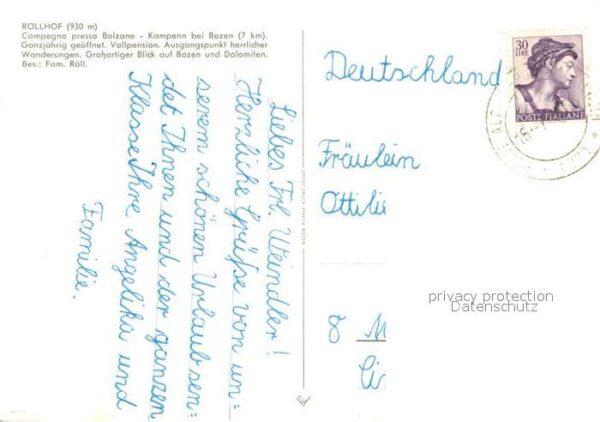 RÖLLHOF (930 m)
Campegno presso Bolzano - Kampenn bei Bozen (7 km).
Ganzjährig geöffnet. Vollpension. Ausgangspunkt herrlicher
Wanderungen. Großartiger Blick auf Bozen und Dolomiten.
Bes.: Fam. Röll.
Liebes Frl. Weindler!
Herzliche Grüße von un=
serem schönen Urlaub sen=
det Ihnen und der ganzen
Klasse Ihre Angelika und
Familie.
30
LIRE
POSTE ITALIANE
Deutschland
Fräulein
Ottilie
8 M
privacy protection
Datenschutz